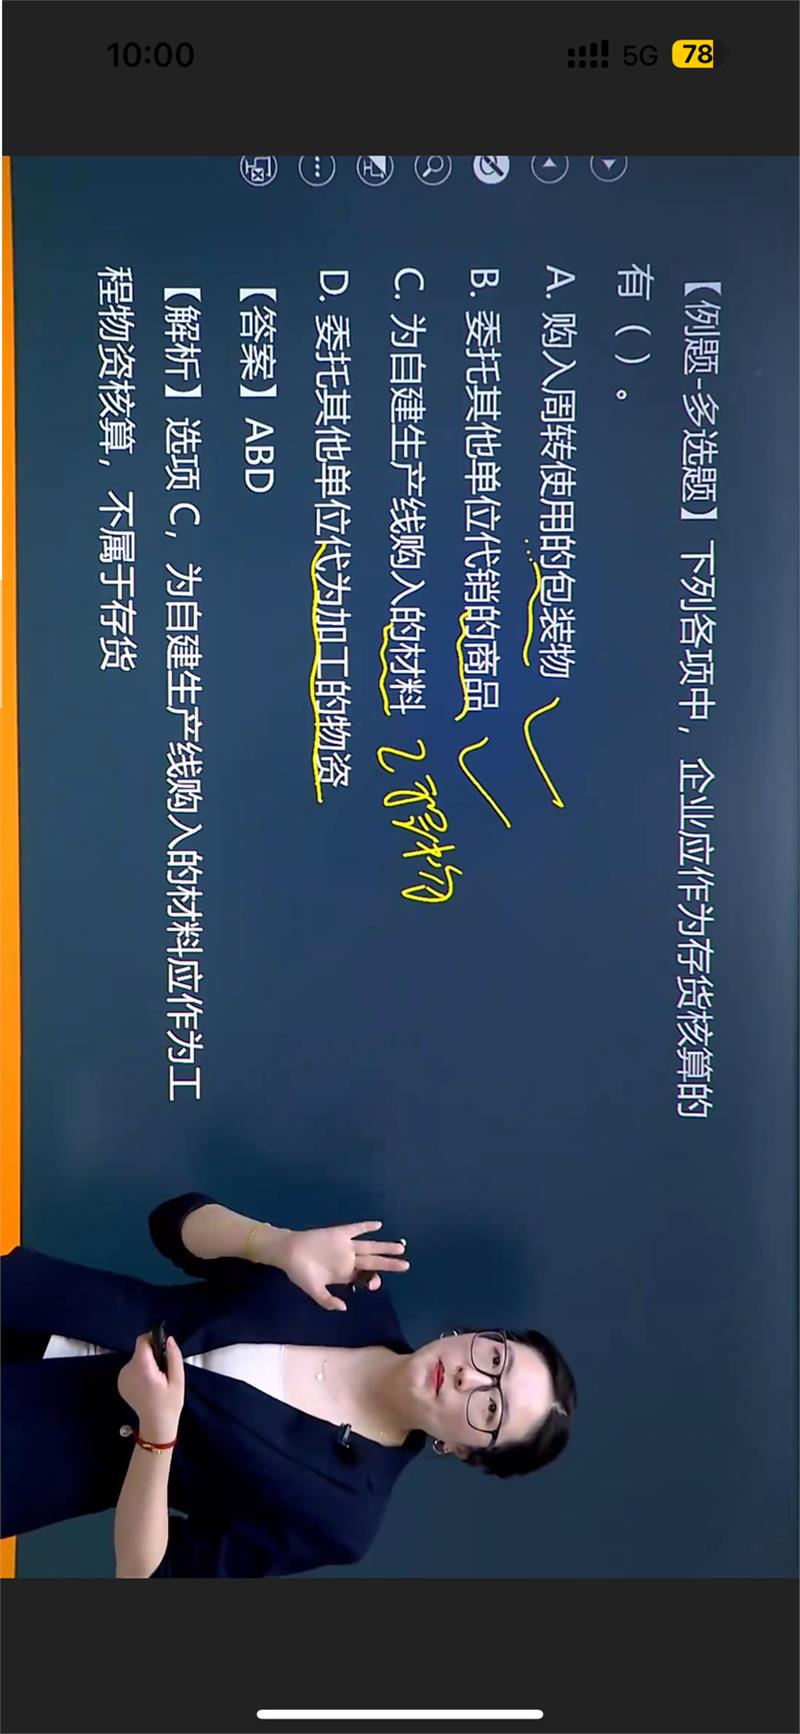 10:00
5G
78
【例题-多选题】下列各项中，企业应作为存货核算的
有（ ）。
A. 购入周转使用的包装物
B. 委托其他单位代销的商品
C. 为自建生产线购入的材料
D. 委托其他单位代为加工的物资
【答案】ABD
【解析】选项 C，为自建生产线购入的材料应作为工
程物资核算，不属于存货